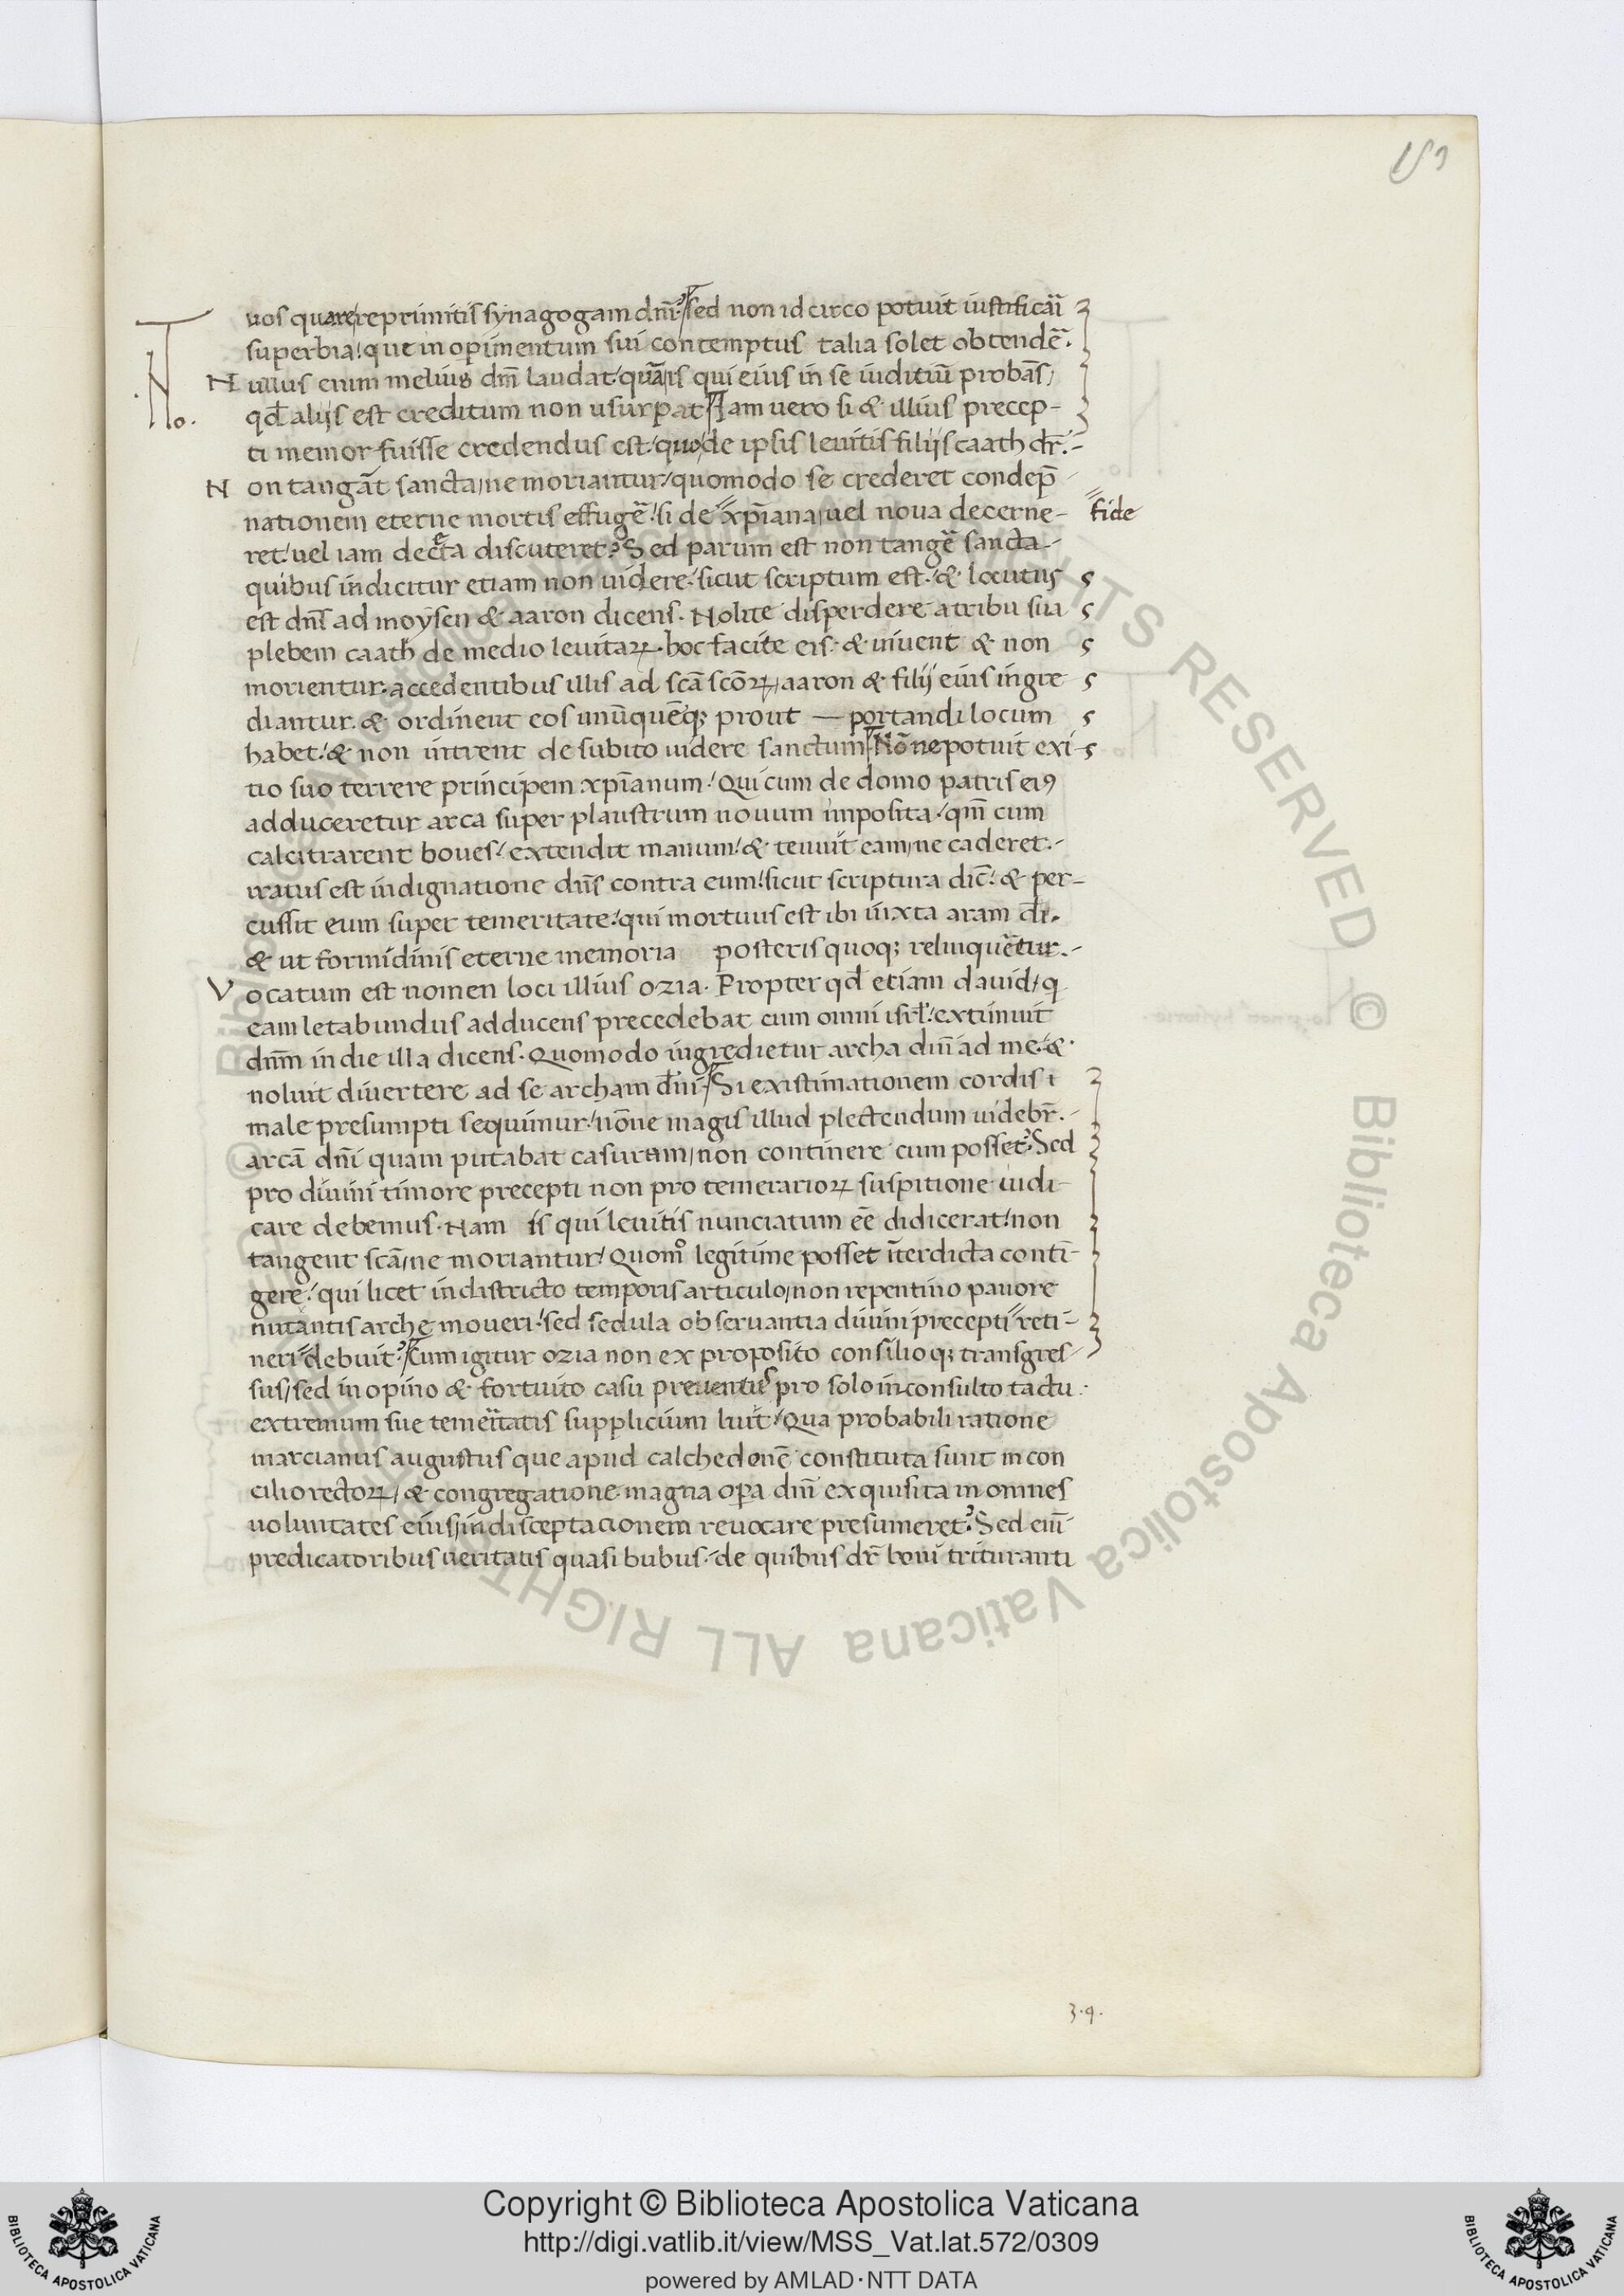 uos quare reprimitis synagogam dñi? sed non idcirco potuit iustificari
superbia! que in opimentum sui contemptus talia solet obtendẽ.
N ullus enim melius dñm laudat quãis qui eius in se iuditiũ probãs,
qđ alijs est creditum non usurpat Iam uero si & illius precep-
ti memor fuisse credendus est quo de ipsis leuitis filijs caath dr̃.
N on tangãt sancta, ne moriantur, quomodo se crederet condep̃
nationem eterne mortis effugẽ! si de xp̃iana, uel noua decerne-
fide
ret. uel iam decreta discuteret? Sed parum est non tangẽ sancta
quibus indicitur etiam non uidere. sicut scriptum est. & locutus
est dñs ad moysen & aaron dicens. Nolite disperdere a tribu sua
plebem caath de medio leuitaꝝ. hoc facite eis. & uiuent & non
morientur. accedentibus illis ad scã scõꝝ, aaron & filij eius ingre
diantur. & ordinent eos unũquẽqꝫ prout — portandi locum
habet! & non intrent de subito uidere sanctum Nõne potuit exi-
tio suo terrere principem xp̃ianum. Qui cum de domo patris eiꝰ
adduceretur arca super plaustrum nouum imposita. qm̃ cum
calcitrarent boues. extendit manum. & tenuit eam, ne caderet.
iratus est indignatione dñs contra eum! sicut scriptura dic̃. & per-
cussit eum super temeritate. qui mortuus est ibi iuxta aram di.
& ut formidinis eterne memoria posteris quoqꝫ relinquẽtur.
V ocatum est nomen loci illius ozia. Propter qđ etiam dauid, q
eam letabundus adducens precedebat cum omni isrl̃. extimuit
dñm in die illa dicens. Quomodo ingredietur archa dñi ad me. &
noluit diuertere ad se archam dñi Si existimationem cordis i
male presumpti sequimur! nõne magis illud plectendum uidebr̃.
arcã dñi quam putabat casuram, non continere cum posset? Sed
pro diuini timore precepti non pro temerarioꝝ suspitione iudi-
care debemus. Nam is qui leuitis nunciatum eẽ didicerat! non
tangent scã, ne moriantur, Quomo legitime posset ĩterdicta conti-
gere. qui licet in districto temporis articulo, non repentino pauore
nutantis arche moueri. sed sedula obseruantia diuini precepti reti-
neri debuit? Cum igitur ozia non ex proposito consilioqꝫ transgres
sus, sed inopino & fortuito casu preuentus pro solo inconsulto tactu
extremum sue temeritatis supplicium luit! Qua probabili ratione
marcianus augustus que apud calchedonẽ constituta sunt in con
cilio rectoꝝ, & congregatione magna opa dñi exquisita in omnes
uoluntates eius, in disceptacionem reuocare presumeret? Sed eiũ
predicatoribus ueritatis quasi bubus. de quibus dr̃ boui trituranti
No.
3.9.
Copyright © Biblioteca Apostolica Vaticana
http://digi.vatlib.it/view/MSS_Vat.lat.572/0309
powered by AMLAD·NTT DATA
BIBLIOTECA APOSTOLICA VATICANA
BIBLIOTECA APOSTOLICA VATICANA
© Biblioteca Apostolica Vaticana ALL RIGHTS RESERVED